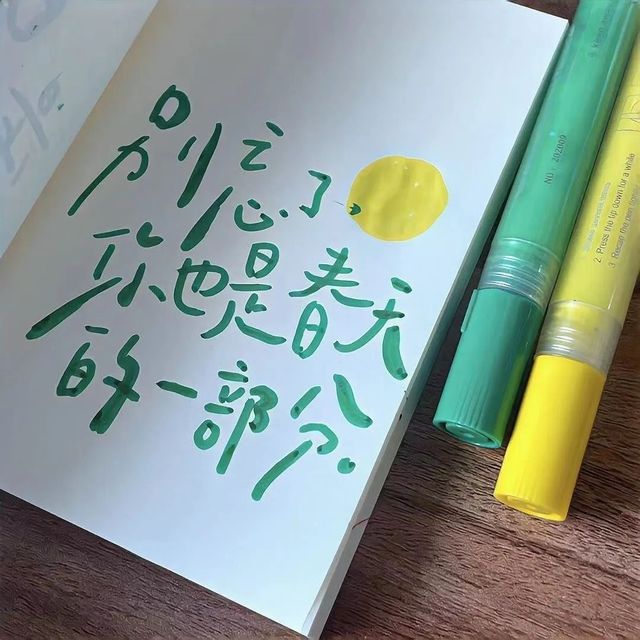 别忘了
你也是春天
的一部分.
NO 202009
2 Press the tip down for a while